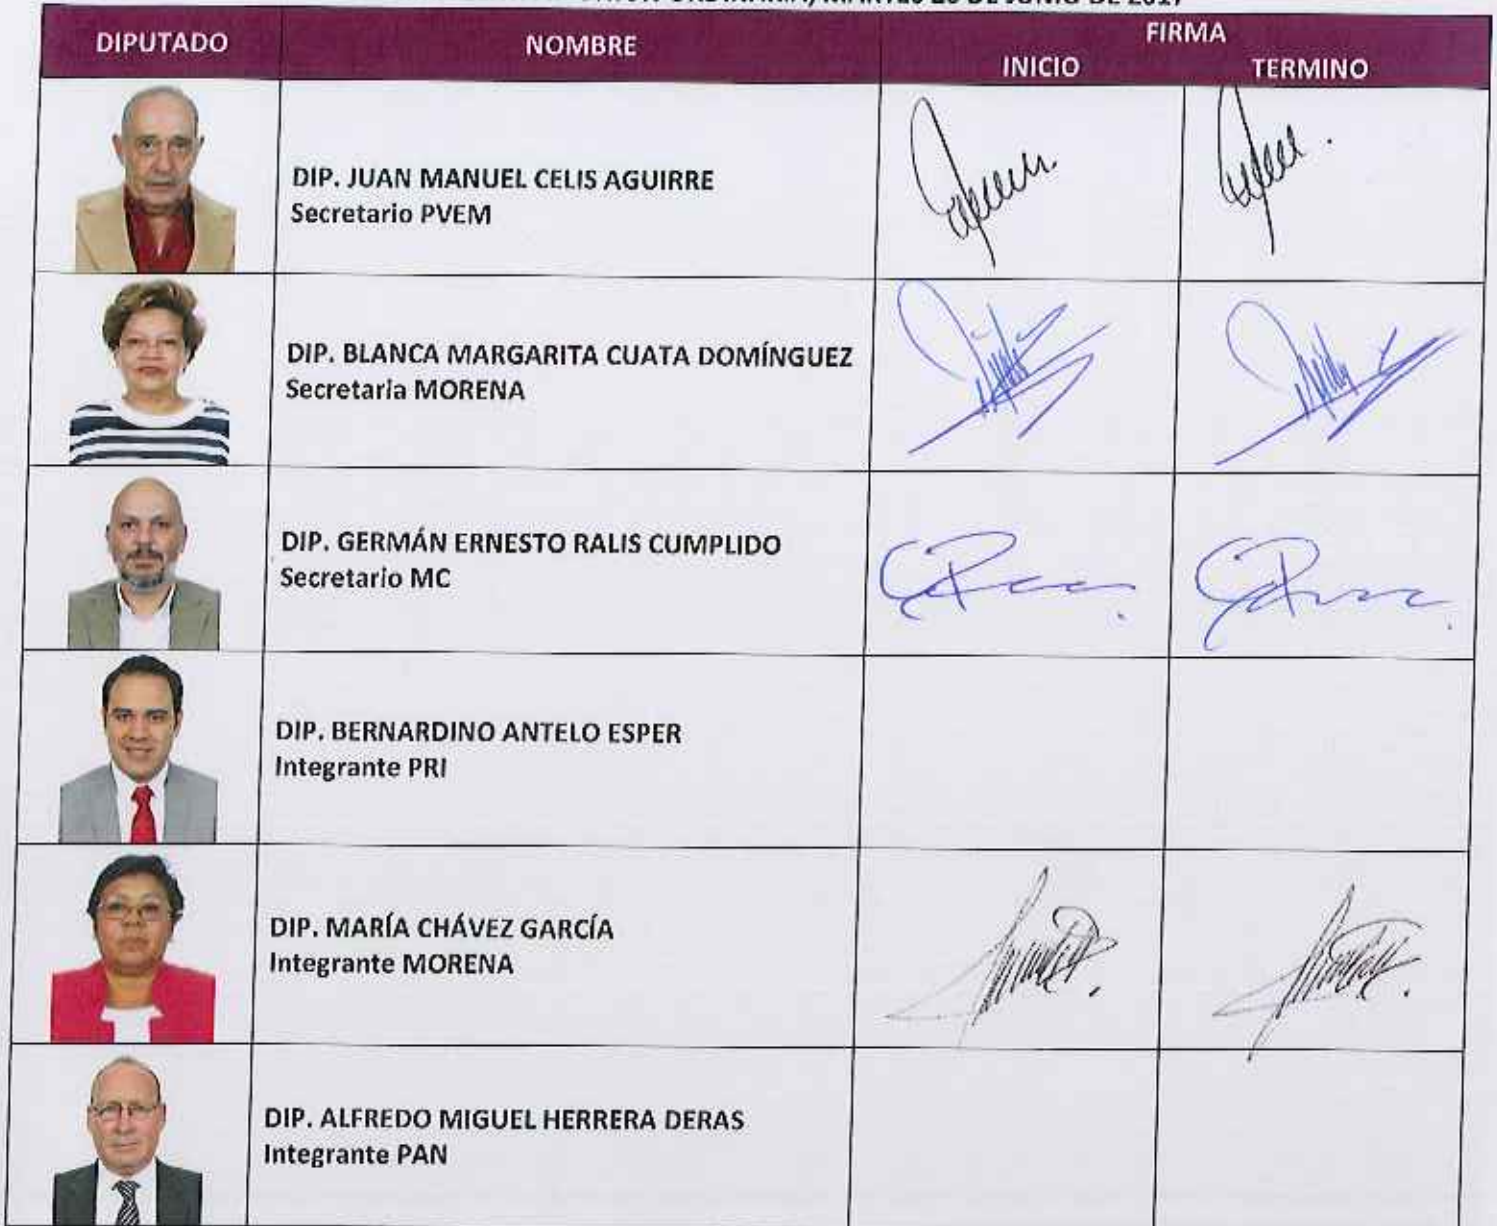 ORDINARIA, MARTES 20 DE JUNIO DE 2017
DIPUTADO
NOMBRE
FIRMA
INICIO
TERMINO
DIP. JUAN MANUEL CELIS AGUIRRE
Secretario PVEM
DIP. BLANCA MARGARITA CUATA DOMÍNGUEZ
Secretaria MORENA
DIP. GERMÁN ERNESTO RALIS CUMPLIDO
Secretario MC
DIP. BERNARDINO ANTELO ESPER
Integrante PRI
DIP. MARÍA CHÁVEZ GARCÍA
Integrante MORENA
DIP. ALFREDO MIGUEL HERRERA DERAS
Integrante PAN